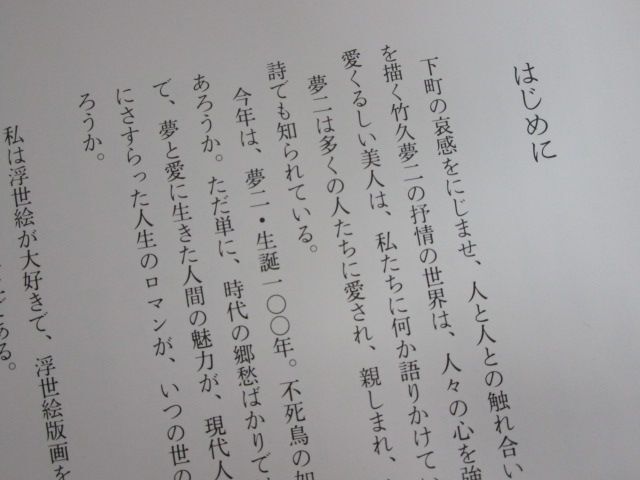 はじめに
下町の哀感をにじませ、人と人との触れ合い
を描く竹久夢二の抒情の世界は、人々の心を強
愛くるしい美人は、私たちに何か語りかけてい
夢二は多くの人たちに愛され、親しまれ、
詩でも知られている。
今年は、夢二・生誕一〇〇年。不死鳥の如
あろうか。ただ単に、時代の郷愁ばかりで
で、夢と愛に生きた人間の魅力が、現代人
にさすらった人生のロマンが、いつの世の
ろうか。
私は浮世絵が大好きで、浮世絵版画を
である。